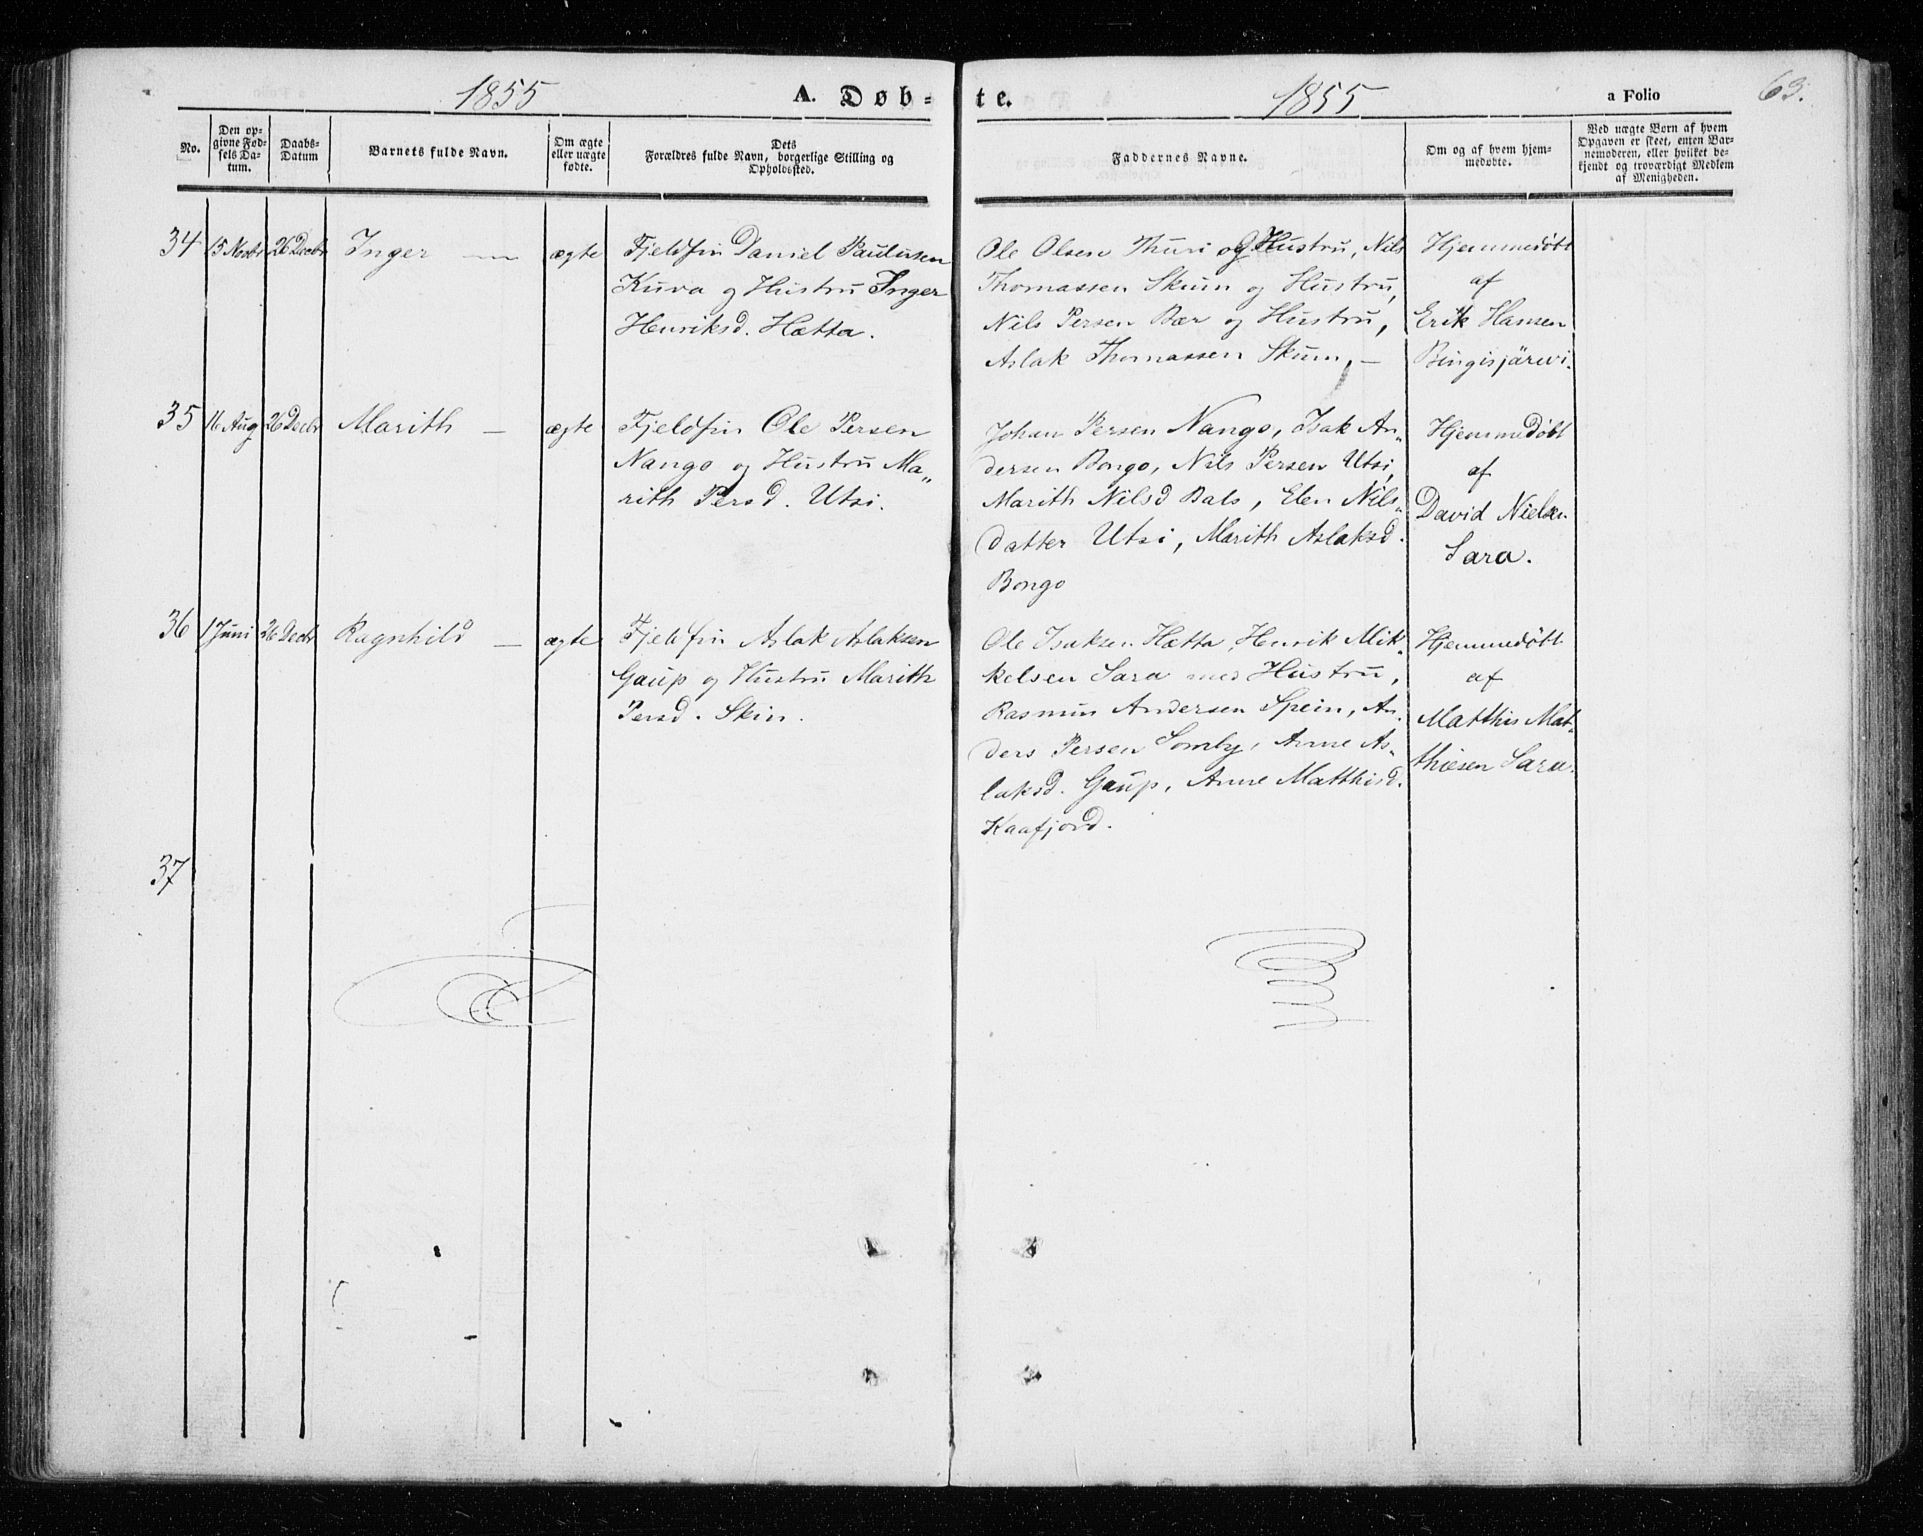 1855 A. Døb-
te. 1855 a Folio 63.
No.
Den op-
givne Fød-
sels Da-
tum.
Daabs-
Datum
Barnets fulde Navn.
Om ægte
eller uægte
fødte.
Dets
Forældres fulde Navn, borgerlige Stilling og
Opholdssted.
Faddernes Navne.
Om og af hvem hjem-
medøbte.
Ved uægte Børn af hvem
Opgaven er skeet, enten Bar-
nemoderen, eller hvilket be-
kjendt og troværdigt Medlem
af Menigheden.
34 15 Novbr 26 Decbr Inger — ægte
Fjeldfin Daniel Paulusen
Kuva og Hustru Inger
Henriksd. Hætta.
Ole Olsen Thuri og Hustru, Nils
Thomassen Skum og Hustru,
Nils Persen Bær og Hustru,
Aslak Thomassen Skum, —
Hjemmedøbt
af
Erik Hansen
Bingisjärwi.
35 16 Aug 26 Decbr Marith — ægte
Fjeldfin Ole Persen
Nango og Hustru Ma„
rith Persd. Utsi.
Johan Persen Nango, Isak An„
dersen Bongo, Nils Persen Utsi,
Marith Nilsd Bals, Elen Nils„
datter Utsi, Marith Aslaksd.
Bongo
Hjemmedøbt
af
David Nielsen
Sara.
36 1 Juni 26 Decbr Ragnhild — ægte
Fjeldfin Aslak Aslaksen
Gaup og Hustru Marith
Persd. Skin.
Ole Isaksen Hætta, Henrik Mik„
kelsen Sara med Hustru,
Rasmus Andersen Spein, An„
ders Persen Somby, Anne As„
laksd. Gaup, Anne Matthisd.
Kaafjord.
Hjemmedøbt
af
Matthis Mat„
thiesen Sara.
37